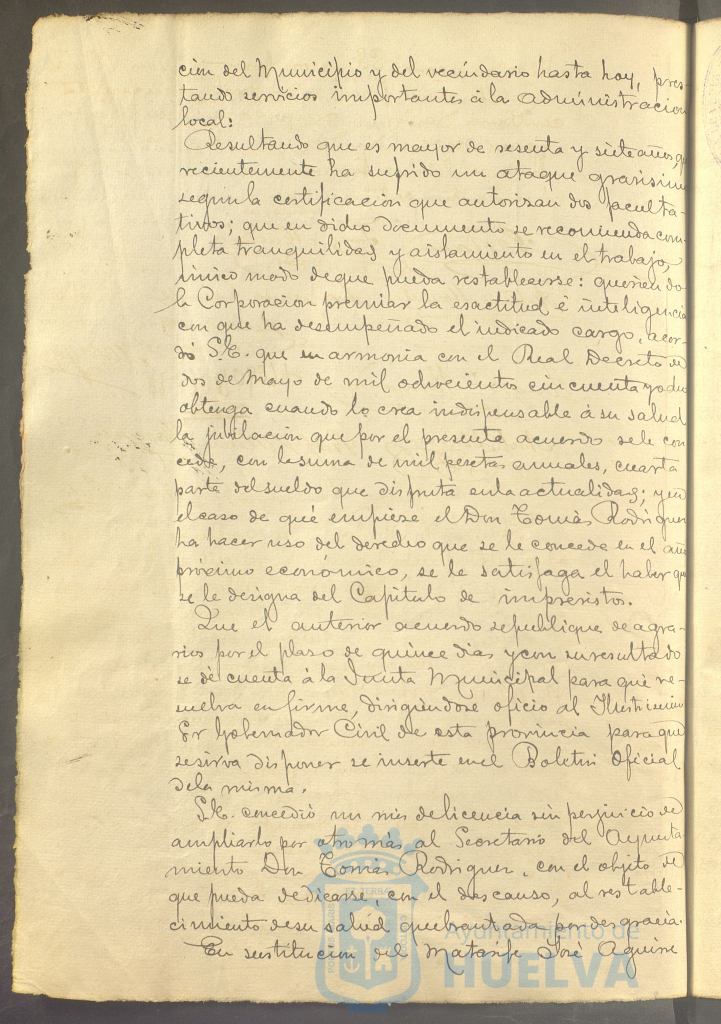 cion del Municipio y del vecindario hasta hoy, pres-
tando servicios importantes á la administracion
local:
Resultando que es mayor de sesenta y siete años, q
recientemente ha sufrido un ataque gravisimo
segun la certificacion que autorizan dos faculta-
tivos; que en dicho documento se recomienda com-
pleta tranquilidad y aislamiento en el trabajo,
único modo de que pueda restablecerse: queriendo
la Corporacion premiar la exactitud é inteligencia
con que ha desempeñado el indicado cargo, acor-
dó S.E. que en armonia con el Real Decreto de
dos de Mayo de mil ochocientos cincuenta y ocho
obtenga cuando lo crea indispensable á su salud
la jubilacion que por el presente acuerdo se le con
cede, con la suma de mil pesetas anuales, cuarta
parte del sueldo que disfruta en la actualidad; y en
el caso de qué empiese el Don Tomás Rodriguez
ha hacer uso del derecho que se le concede en el año
próximo económico, se le satisfaga el haber que
se le designa del Capitulo de imprevistos.
Que el anterior acuerdo se publique de agra-
vios por el plaso de quince dias y con su resultado
se dé cuenta á la Junta Municipal para que re-
suelva en firme, dirigiendose oficio al Ilustrisimo
Sr Gobernador Civil de esta provincia para que
se sirva disponer se inserte en el Boletin Oficial
de la misma.
S.E. concedió un mes de licencia sin perjuicio de
ampliarlo por otro más al Secretario del Ayunta
miento Don Tomás Rodriguez, con el objeto de
que pueda dedicarse, con el descanso, al restable-
cimiento de su salud quebrantada por desgracia.
En sustitucion del Matarife José Aguirre
Ayuntamiento de
HUELVA